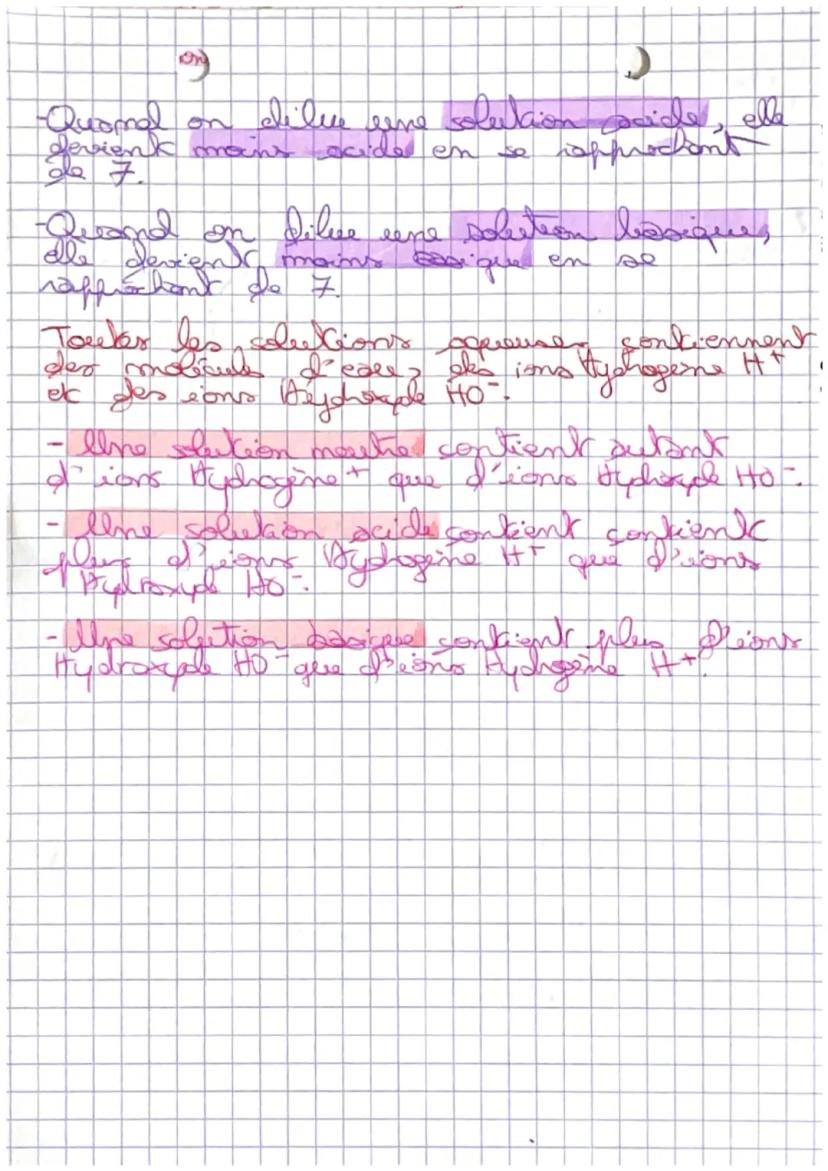 on
-Quand on dilue une solution acide, elle
devient moins acide en se rapprochant
de 7.
-Quand on dilue une solution basique,
elle devient moins basique en se
rapprochant de 7.
Toutes les solutions aqueuses contiennent
des molécules d'eau, des ions Hydrogène H+
et des ions Hydroxyde HO-.
- Une solution neutre contient autant
d'ions Hydrogène+ que d'ions Hydroxyde HO-.
- Une solution acide contient contient
plus d'ions Hydrogène H+ que d'ions
Hydroxyde HO-.
- Une solution basique contient plus d'ions
Hydroxyde HO- que d'ions Hydrogène H+.